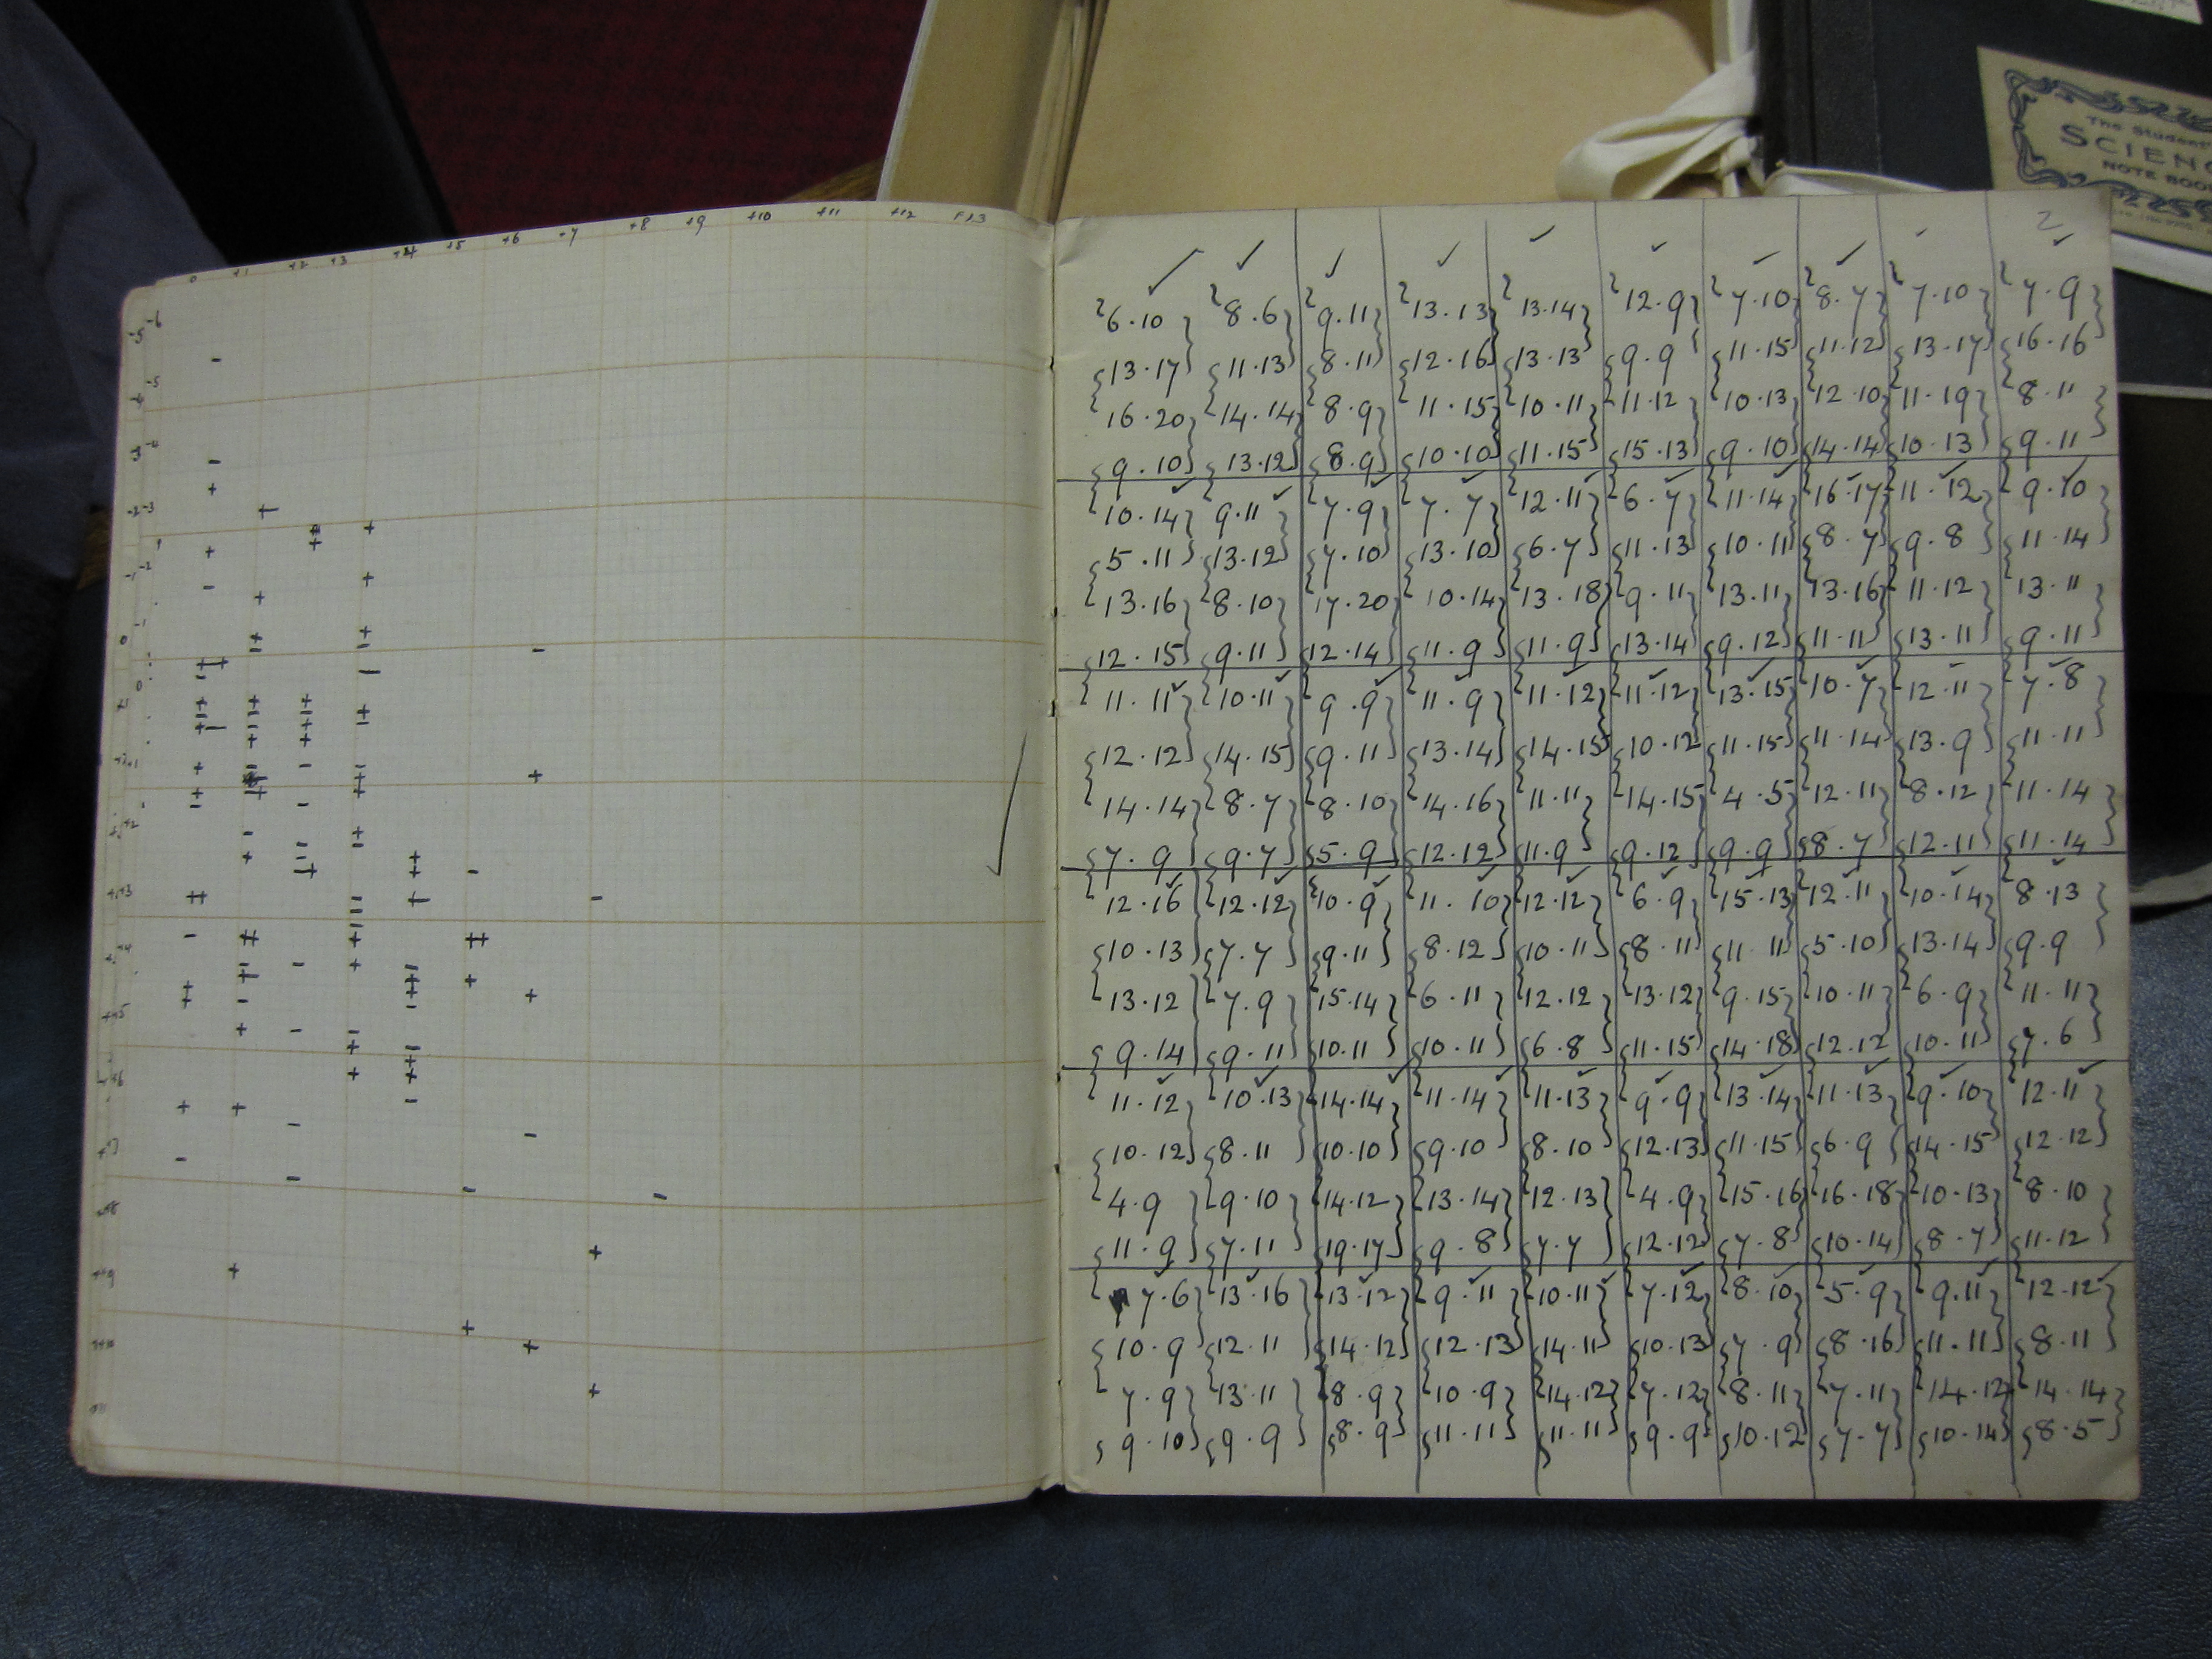 The Student'
SCIENC
NOTE BOO
0 +1 +2 +3 +4 +5 +6 +7 +8 +9 +10 +11 +12
2
6.10 8.6 9.11 13.13 13.14 12.9 7.10 8.7 7.10 7.9
13.17 11.13 8.11 12.16 13.13 9.9 11.15 11.12 13.17 16.16
16.20 14.14 8.9 11.15 10.11 11.12 10.13 12.10 11.19 8.11
9.10 13.12 8.9 10.10 11.15 15.13 9.10 14.14 10.13 9.11
10.14 9.11 7.9 7.7 12.11 6.7 11.14 16.17 11.12 9.10
5.11 13.12 7.10 13.10 6.7 11.13 10.11 8.7 9.8 11.14
13.16 8.10 17.20 10.14 13.18 9.11 13.11 13.16 11.12 13.11
12.15 9.11 12.14 11.9 11.9 13.14 9.12 11.11 13.11 9.11
11.11 10.11 9.9 11.9 11.12 11.12 13.15 10.7 12.11 7.8
12.12 14.15 9.11 13.14 14.15 10.12 11.15 11.14 13.9 11.11
14.14 8.7 8.10 14.16 11.11 14.15 4.5 12.11 8.12 11.14
7.9 9.7 5.9 12.12 11.9 9.12 9.9 8.7 12.11 11.14
12.16 12.12 10.9 11.10 12.12 6.9 15.13 12.11 10.14 8.13
10.13 7.7 9.11 8.12 10.11 8.11 11.11 5.10 13.14 9.9
13.12 7.9 15.14 6.11 12.12 13.12 9.15 10.11 6.9 11.11
9.14 9.11 10.11 10.11 6.8 11.15 14.18 12.12 10.11 7.6
11.12 10.13 14.14 11.14 11.13 9.9 13.14 11.13 9.10 12.11
10.12 8.11 10.10 9.10 8.10 12.13 11.15 6.9 14.15 12.12
4.9 9.10 14.12 13.14 12.13 4.9 15.16 16.18 10.13 8.10
11.9 7.11 19.17 9.8 7.7 12.12 7.8 10.14 8.7 11.12
7.6 13.16 13.12 9.11 10.11 7.12 8.10 5.9 9.11 12.12
10.9 12.11 14.12 12.13 14.11 10.13 7.9 8.16 11.11 8.11
7.9 13.11 8.9 10.9 14.12 7.12 8.11 7.11 14.12 14.14
9.10 9.9 8.9 11.11 11.11 9.9 10.12 7.7 10.14 8.5